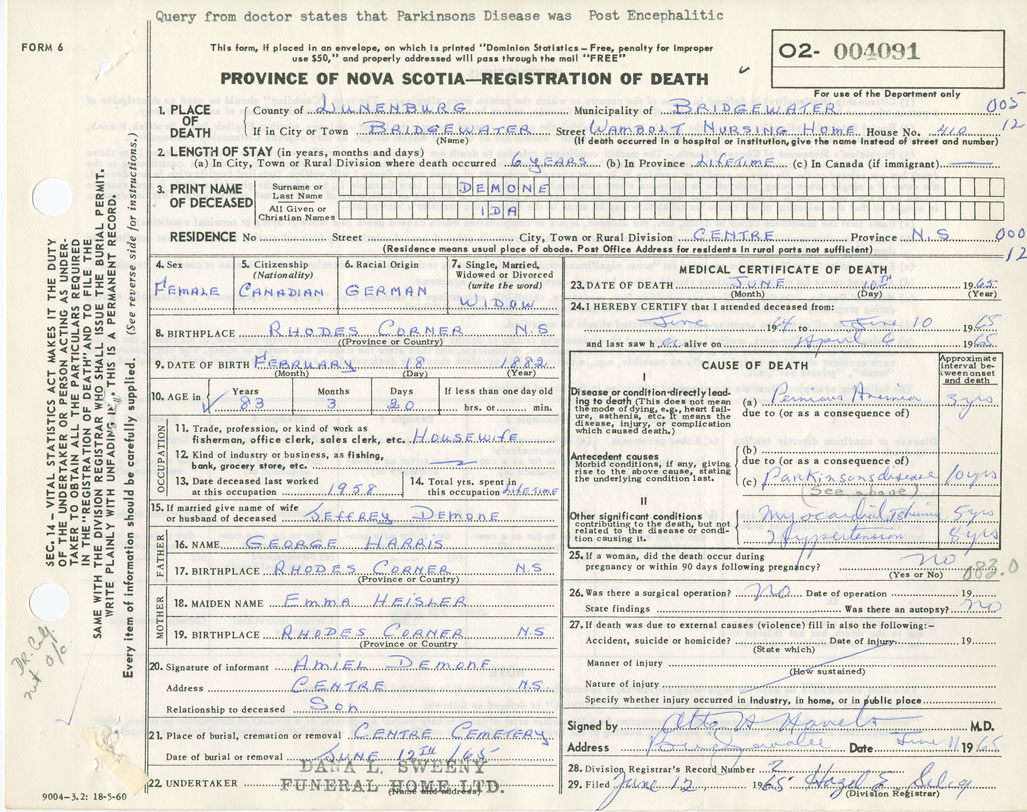 Query from doctor states that Parkinsons Disease was Post Encephalitic
FORM 6
This form, if placed in an envelope, on which is printed "Dominion Statistics – Free, penalty for improper
use $50," and properly addressed will pass through the mail "FREE"
O2- 004091
PROVINCE OF NOVA SCOTIA—REGISTRATION OF DEATH
For use of the Department only
1. PLACE OF DEATH County of LUNENBURG Municipality of BRIDGEWATER 005
If in City or Town BRIDGEWATER Street WAMBOLT NURSING HOME House No. 410 12
(Name) (If death occurred in a hospital or institution, give the name instead of street and number)
2. LENGTH OF STAY (in years, months and days)
(a) In City, Town or Rural Division where death occurred 6 YEARS (b) In Province LIFETIME (c) In Canada (if immigrant)
3. PRINT NAME OF DECEASED Surname or Last Name DEMONE
All Given or Christian Names IDA
RESIDENCE No Street City, Town or Rural Division CENTRE Province N.S 000
(Residence means usual place of abode. Post Office Address for residents in rural parts not sufficient) 12
4. Sex FEMALE
5. Citizenship (Nationality) CANADIAN
6. Racial Origin GERMAN
7. Single, Married, Widowed or Divorced (write the word) WIDOW
8. BIRTHPLACE RHODES CORNER N.S
(Province or Country)
9. DATE OF BIRTH FEBRUARY 18 1882
(Month) (Day) (Year)
10. AGE Years Months Days If less than one day old
83 3 20 hrs. or min.
OCCUPATION
11. Trade, profession, or kind of work as
fisherman, office clerk, sales clerk, etc. HOUSEWIFE
12. Kind of industry or business, as fishing,
bank, grocery store, etc.
13. Date deceased last worked at this occupation 1958
14. Total yrs. spent in this occupation LIFETIME
15. If married give name of wife
or husband of deceased JEFFREY DEMONE
FATHER
16. NAME GEORGE HARRIS
17. BIRTHPLACE RHODES CORNER N.S
(Province or Country)
MOTHER
18. MAIDEN NAME EMMA HEISLER
19. BIRTHPLACE RHODES CORNER N.S
(Province or Country)
20. Signature of informant AMIEL DEMONE
Address CENTRE N.S.
Relationship to deceased SON
21. Place of burial, cremation or removal CENTRE CEMETERY
Date of burial or removal JUNE 12TH /65
22. UNDERTAKER DANA L. SWEENY
FUNERAL HOME LTD.
(Name and address)
9004-3.2: 18-5-60
MEDICAL CERTIFICATE OF DEATH
23. DATE OF DEATH JUNE 10TH 1965
(Month) (Day) (Year)
24. I HEREBY CERTIFY that I attended deceased from:
June 1964 to June 10 1965
and last saw her alive on April 6 1965
CAUSE OF DEATH
Approximate interval between onset and death
I
Disease or condition directly leading to death (This does not mean the mode of dying, e.g., heart failure, asthenia, etc. It means the disease, injury, or complication which caused death.)
(a) Pernicious Anemia 3 yrs
due to (or as a consequence of)
Antecedent causes
Morbid conditions, if any, giving rise to the above cause, stating the underlying condition last.
(b)
due to (or as a consequence of)
(c) Parkinsons disease 10 yrs
(See above)
II
Other significant conditions
contributing to the death, but not related to the disease or condition causing it.
Myocardial Ischemia 5 yrs
Hypertension 8 yrs
25. If a woman, did the death occur during
pregnancy or within 90 days following pregnancy? No
(Yes or No) 083.0
26. Was there a surgical operation? No Date of operation 19
State findings Was there an autopsy? No
27. If death was due to external causes (violence) fill in also the following:–
Accident, suicide or homicide? Date of injury 19
(State which)
Manner of injury
(How sustained)
Nature of injury
Specify whether injury occurred in industry, in home, or in public place
Signed by M.D.
Address Date June 11 1965
28. Division Registrar's Record Number 2
29. Filed June 12, 1965 Hazel E Selig
(Division Registrar)
SEC. 14 – VITAL STATISTICS ACT MAKES IT THE DUTY
OF THE UNDERTAKER OR PERSON ACTING AS UNDER-
TAKER TO OBTAIN ALL THE PARTICULARS REQUIRED
IN THE "REGISTRATION OF DEATH" AND TO FILE THE
SAME WITH THE DIVISION REGISTRAR WHO SHALL ISSUE THE BURIAL PERMIT.
WRITE PLAINLY WITH UNFADING INK. THIS IS A PERMANENT RECORD.
Every item of information should be carefully supplied. (See reverse side for instructions.)